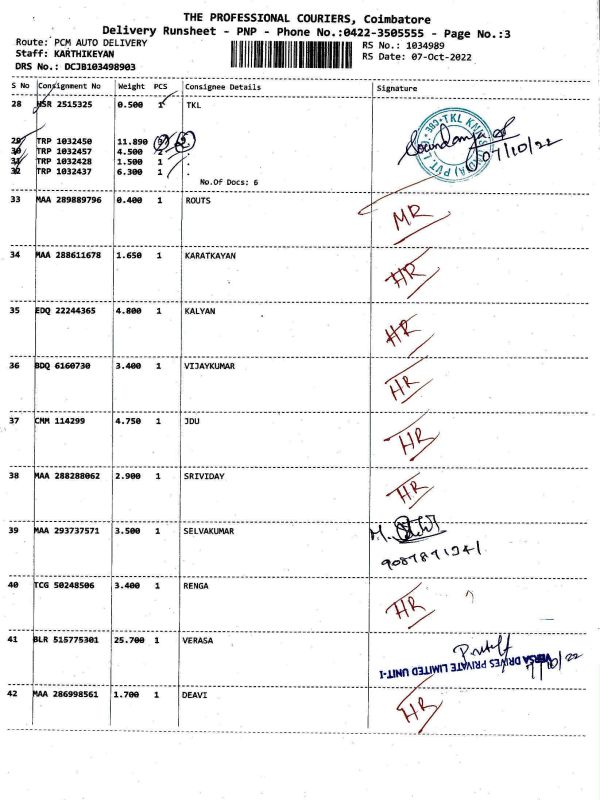 THE PROFESSIONAL COURIERS, Coimbatore
Delivery Runsheet - PNP - Phone No.:0422-3505555 - Page No.:3
Route: PCM AUTO DELIVERY
RS No.: 1034989
Staff: KARTHIKEYAN
RS Date: 07-Oct-2022
DRS No.: DCJB103498903
S No Consignment No Weight PCS Consignee Details Signature
28 HSR 2515325 0.500 1 TKL
29 TRP 1032450 11.890
30 TRP 1032457 4.500
31 TRP 1032428 1.500 1
32 TRP 1032437 6.300 1
07/10/22
No.Of Docs: 6
33 MAA 289889796 0.400 1 ROUTS
MR
34 MAA 288611678 1.650 1 KARATKAYAN
HR
35 EDQ 22244365 4.800 1 KALYAN
HR
36 BDQ 6160730 3.400 1 VIJAYKUMAR
HR
37 CMM 114299 4.750 1 JDU
HR
38 MAA 288288062 2.900 1 SRIVIDAY
HR
39 MAA 293737571 3.500 1 SELVAKUMAR
40 TCG 50248506 3.400 1 RENGA
HR
41 BLR 515775301 25.700 1 VERASA
VERSA DRIVES PRIVATE LIMITED UNIT-I
42 MAA 286998561 1.700 1 DEAVI
HR